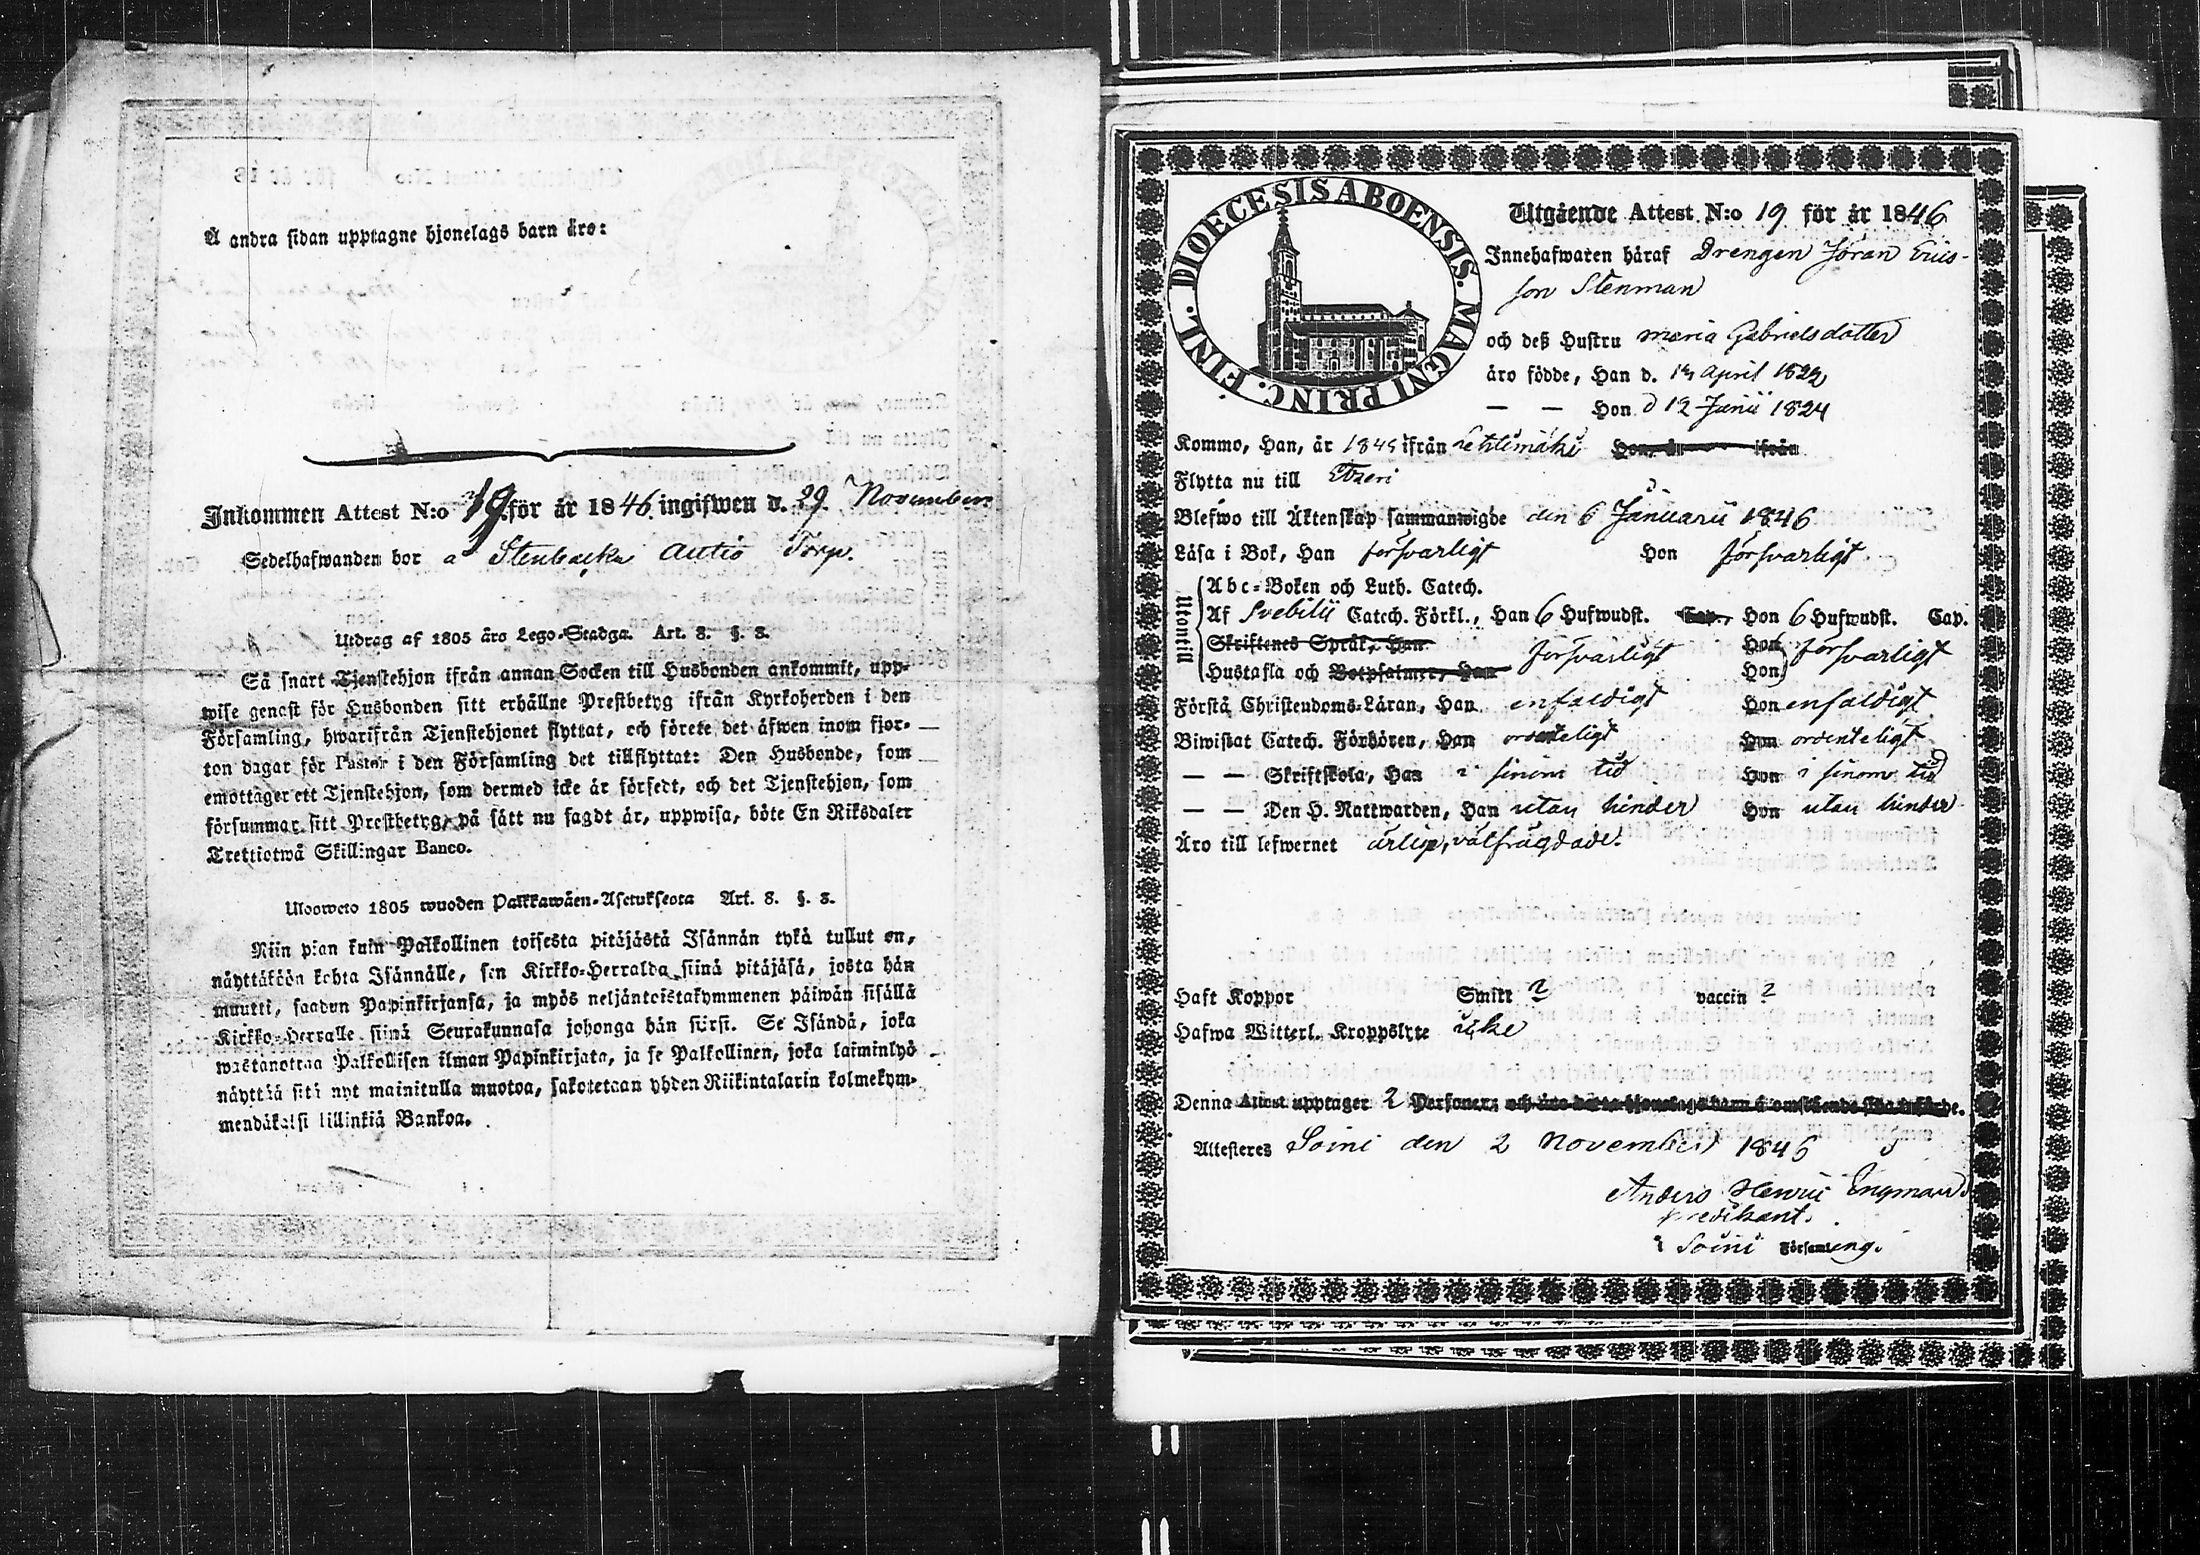 Å andra sidan upptagne hjonelags barn äro:
Inkommen Attest N:o 19 för år 1846 ingifwen d. 29 November
Sedelhafwanden bor a Stenbacka Autio Torp.
Utdrag af 1805 års Lego-Stadga. Art. 8. §. 8.
Så snart Tjenstehjon ifrån annan Socken till Husbonden ankommit, upp-
wise genast för Husbonden sitt erhållne Prestbetyg ifrån Kyrkoherden i den
Församling, hwarifrån Tjenstehjonet flyttat, och förete det äfwen inom fjor-
ton dagar för Pastor i den Församling det tillflyttat: Den Husbonde, som
emottager ett Tjenstehjon, som dermed icke är försedt, och det Tjenstehjon, som
försummar sitt Prestbetyg, på sätt nu sagdt är, uppwisa, böte En Riksdaler
Trettiotwå Skillingar Banco.
Ulosweto 1805 wuoden Palkkawäen-Asetuksesta Art. 8. §. 8.
Niin pian kuin Palkollinen toisesta pitäjästä Isännän tykö tullut on,
näyttäköön kohta Isännälle, sen Kirkko-Herralda siinä pitäjäsä, josta hän
muutti, saadun Papinkirjansa, ja myös neljäntoistakymmenen päiwän sisällä
Kirkko-Herralle siinä Seurakunnasa johonga hän siirsi. Se Isändä, joka
wastanottaa Palkollisen ilman Papinkirjata, ja se Palkollinen, joka laiminlyö
näyttää sitä nyt mainitulla muotoa, sakotetaan yhden Riikintalarin kolmekym-
mendäkaksi killinkiä Bankoa.
DIOECESIS ABOENSIS. MAGNI PRINC. FINL.
Utgående Attest N:o 19 för år 1846
Innehafwaren häraf Drengen Jöran Eriis-
son Stenman
och deß Hustru Maria Gabrielsdotter
äro födde, Han d. April 1822
— — Hon d 12 Junii 1824
Kommo, Han, år 1845 ifrån Lehtimäki Hon, år ifrån
Flytta nu till Etseri
Blefwo till Äktenskap sammanwigde den 6 Januarii 1846
Läsa i Bok, Han försvarligt Hon försvarligt
Utontill
Abc-Boken och Luth. Catech.
Af Svebilii Catech. Förkl., Han 6 Hufwudst. Cap., Hon 6 Hufwudst. Cap.
Skriftenes Språk, Han försvarligt Hon försvarligt
Hustafla och Botpsalmer, Han Hon
Förstå Christendoms-Läran, Han enfaldigt Hon enfaldigt
Biwistat Catech. Förhören, Han ordenteligt Hon ordenteligt
— — Skriftskola, Han i sinom tid Hon i sinom tid
— — Den H. Nattwarden, Han utan hinder Hon utan hinder
Äro till lefwernet ärlige, välfrägdade.
Haft Koppor Smitt 2 vaccin 2
Hafwa Witterl. Kroppslyte icke
Denna Attest upptager 2 Personer; och äro deras hjonelags barn å omstående sida införde.
Attesteres Soini den 2 November 1846
Anders Henric Engman
predikant.
i Soini Församling.